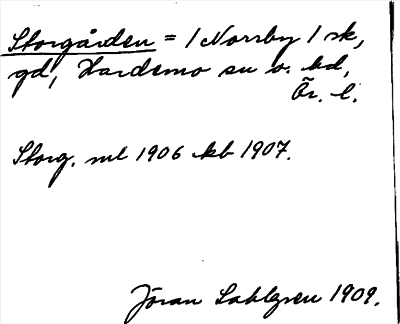 Storgården = 1 Norrby 1 sk,
gd, Hardemo sn o. hd,
Ör. l.
Storg. ml 1906 kb 1907.
Jöran Sahlgren 1909.